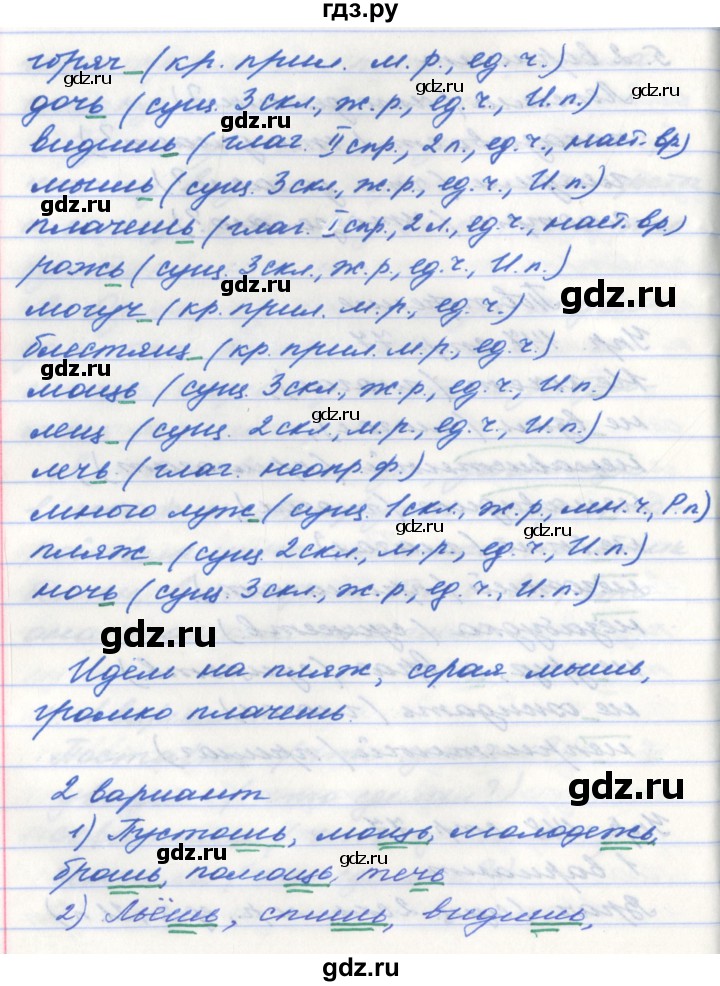 гдз.ру
горяч_ (кр. прил. м. р., ед. ч.)
gdz.ru
gdz.ru
gdz.ru
дочь (сущ. 3 скл., ж. р., ед. ч., И. п.)
gdz.ru
видишь (глаг. II спр., 2 л., ед. ч., наст. вр.)
мышь (сущ. 3 скл., ж. р., ед. ч., И. п.)
gdz.ru
плачешь (глаг. I спр., 2 л., ед. ч., наст. вр.)
рожь (сущ. 3 скл., ж. р., ед. ч., И. п.)
gdz.ru
gdz.ru
могуч_ (кр. прил. м. р., ед. ч.)
блестящ_ (кр. прил. м. р., ед. ч.)
gdz.ru
мощь (сущ. 3 скл., ж. р., ед. ч., И. п.)
gdz.ru
лещ_ (сущ. 2 скл., м. р., ед. ч., И. п.)
лечь (глаг. неопр. ф.)
много луж_ (сущ. 1 скл., ж. р., мн. ч., Р. п.)
gdz.ru
gdz.ru
пляж_ (сущ. 2 скл., м. р., ед. ч., И. п.)
ночь (сущ. 3 скл., ж. р., ед. ч., И. п.)
gdz.ru
Идём на пляж, серая мышь,
громко плачешь.
gdz.ru
2 вариант
1) Пустошь, мощь, молодежь,
gdz.ru
gdz.ru
брошь, помощь, течь
2) Льёшь, спишь, видишь,
gdz.ru